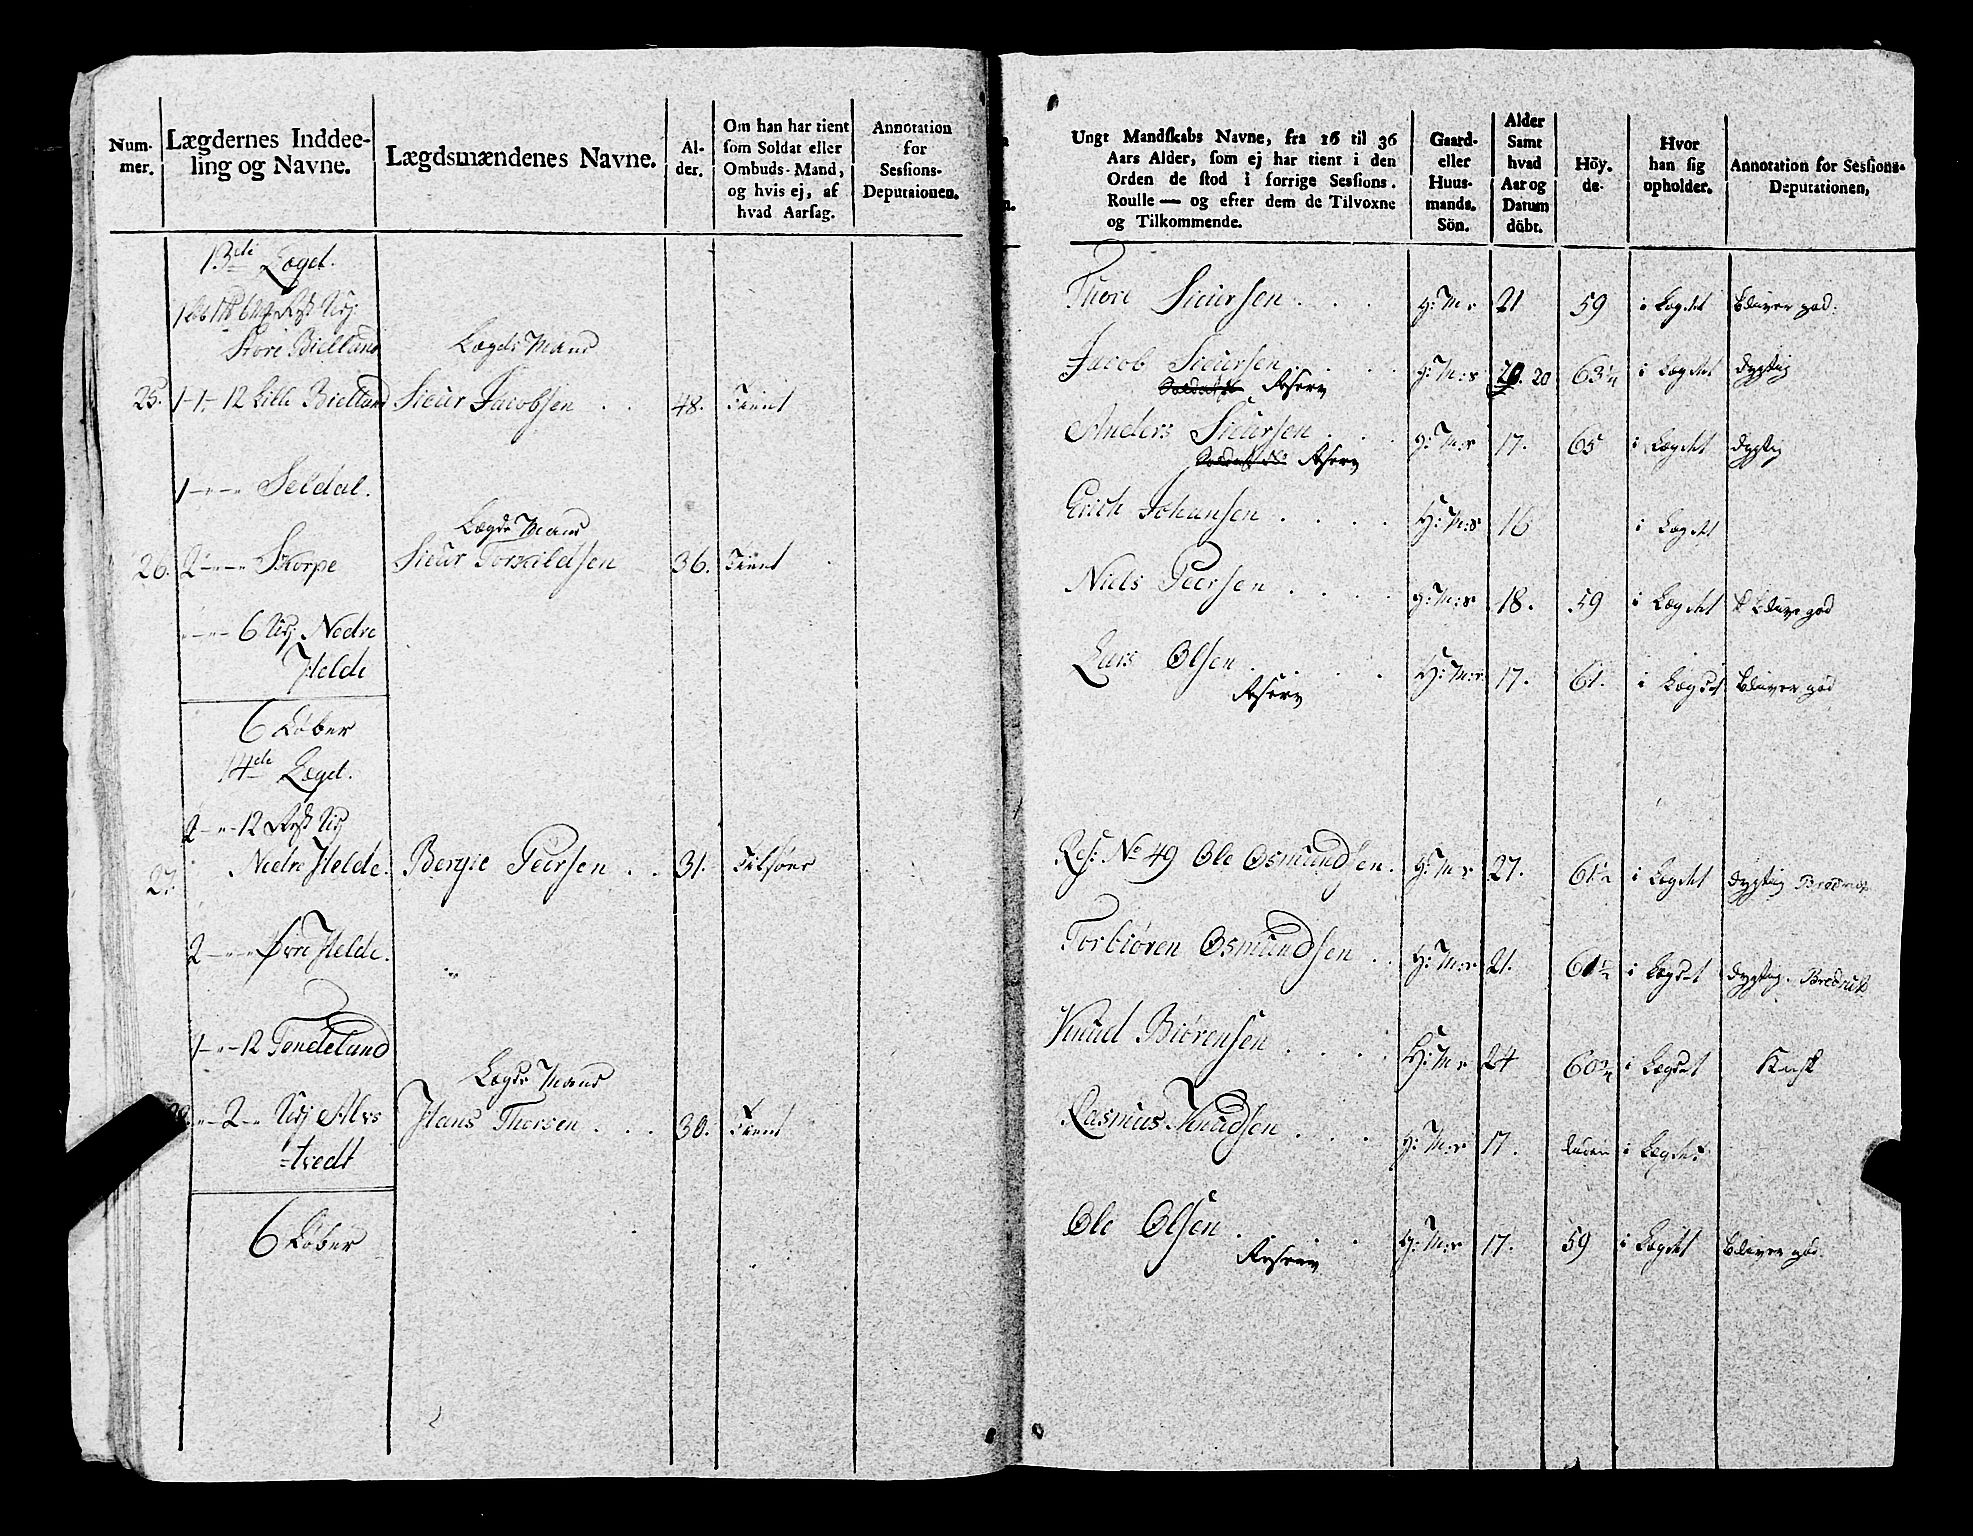 Num-
mer.
Lægdernes Inddee-
ling og Navne.
Lægdsmændenes Navne.
Al-
der.
Om han har tient
som Soldat eller
Ombuds-Mand,
og hvis ej, af
hvad Aarsag.
Annotation
for
Sessions-
Deputationen.
13de Lægd.
Store Bielland
Lægds Mand
25. 1-1-12 Lille Bielland Siur Jacobsen . . 48. Tient
1-"-" Seldal.
Lægds Mand
26. 2-"-" Skorpe Siur Torkildsen 36. Tient
"-"-6 Udj Nedre
Helde
6 Løber
14de Lægd.
2-"-12 Udj
27. Nedre Helde. Bergie Peersen . . 31. Tilføer
2-"-" Øvre Helde.
1-"-12 Tondeland
Lægds Mand
28. "-2-" Udj Alvs Hans Thorsen . . . 30. Tient
=tvedt
6 Løber
Ungt Mandskabs Navne, fra 16 til 36
Aars Alder, som ej har tient i den
Orden de stod i forrige Sessions-
Roulle — og efter dem de Tilvoxne
og Tilkommende.
Gaard-
eller
Huus-
mands.
Sön.
Alder
Samt
hvad
Aar og
Datum
döbt.
Höy-
de.
Hvor
han sig
opholder.
Annotation for Sessions-
Deputationen,
Thore Siursen . . . g: M: s 21 59 i Lægdet bliver god.
Jacob Siursen . . . . g: M: s 20. 20 63 1/4 i Lægdet dygtig
Reserv
Anders Siursen . . . g: M: s 17. 65 i Lægdet dygtig
Reserv
Erich Johansen . . . . H: M: s 16 i Lægdet
Niels Peersen . . . . g: M: s 18. 59 i Lægdet bliver god
Lars Olsen . . . . H: M: s 17. 61. i Lægdet bliver god
Reserv
Res: No 49 Ole Osmundsen. g: M: s 27. 61 1/2 i Lægdet dygtig
Torbiøren Osmundsen . . g: M: s 21. 61 1/2 i Lægdet dygtig.
Knud Biørensen . . . . H: M: s 24 60 3/4 i Lægdet
Rasmus Knudsen . . . g: M: s 17. i Lægdet
Ole Olsen . . . g: M: s 17. 59 i Lægdet bliver god.
Reserv